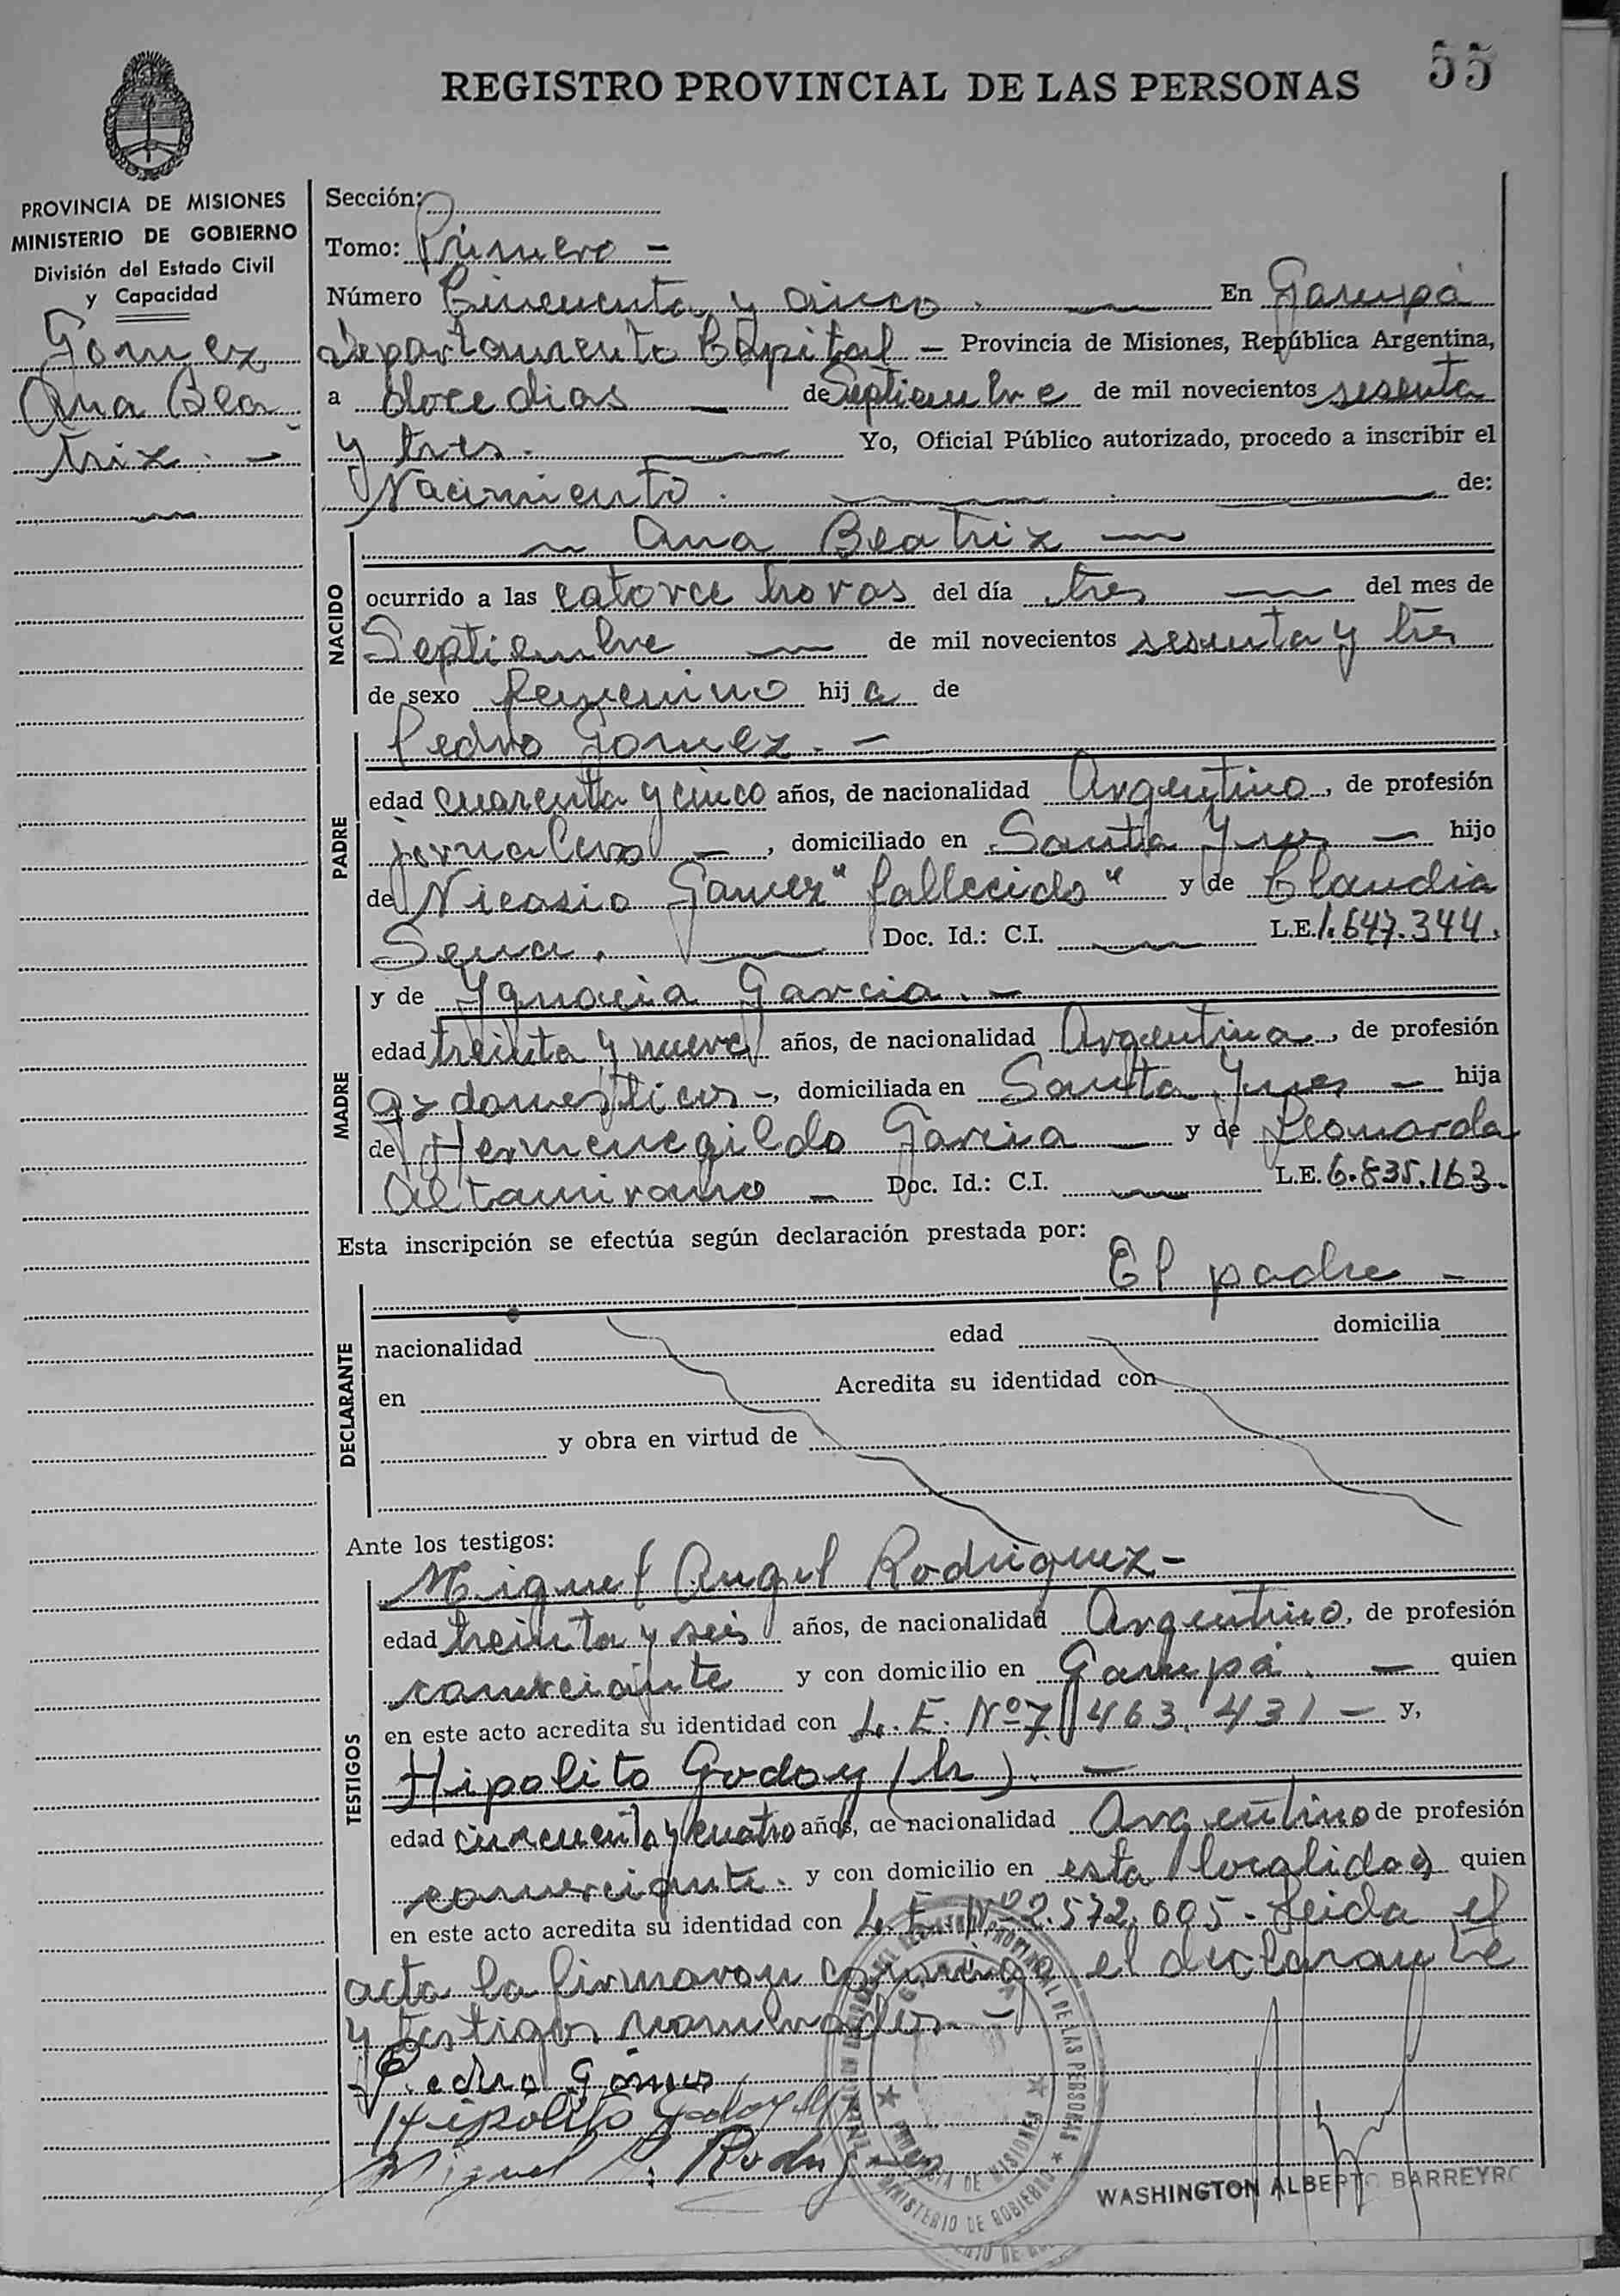 REGISTRO PROVINCIAL DE LAS PERSONAS
55
PROVINCIA DE MISIONES
MINISTERIO DE GOBIERNO
División del Estado Civil
y Capacidad
Gomez
Ana Bea
triz. -
Sección:
Tomo: Primero -
Número Cincuenta y cinco. En Garupá
departamento Capital - Provincia de Misiones, República Argentina,
a doce dias de Septiembre de mil novecientos sesenta
y tres. Yo, Oficial Público autorizado, procedo a inscribir el
Nacimiento. de:
NACIDO
Ana Beatriz
ocurrido a las catorce horas del día tres del mes de
Septiembre de mil novecientos sesenta y tres
de sexo femenino hija de
PADRE
Pedro Gomez. -
edad cuarenta y cinco años, de nacionalidad Argentino, de profesión
jornalero -, domiciliado en Santa Ynes - hijo
de Nicasio Gomez "fallecido" y de Claudia
Sena. Doc. Id.: C.I. L.E. 1.647.344.
MADRE
y de Ygnacia Garcia. -
edad treinta y nueve años, de nacionalidad Argentina, de profesión
qz domesticos -, domiciliada en Santa Ynes - hija
de Hermenegildo Garcia y de Leonarda
Altamirano - Doc. Id.: C.I. L.E. 6.835.163.
Esta inscripción se efectúa según declaración prestada por:
El padre -
DECLARANTE
nacionalidad edad domicilia
en Acredita su identidad con
y obra en virtud de
Ante los testigos:
TESTIGOS
Miguel Angel Rodriguez -
edad treinta y seis años, de nacionalidad Argentino, de profesión
comerciante y con domicilio en Garupá. - quien
en este acto acredita su identidad con L. E. Nº 7.463.431 - y,
Hipolito Godoy (h). -
edad cincuenta y cuatro años, de nacionalidad Argentino de profesión
comerciante. y con domicilio en esta localidad quien
en este acto acredita su identidad con L. E. Nº 2.572.005. Leida el
acta la firmaron conmigo el declarante
y testigos nombrados. -
Pedro Gómes
Hipólito Godoy
Miguel A. Rodriguez
PROVINCIAL DE LAS PERSONAS
MINISTERIO DE GOBIERNO
DE MISIONES
WASHINGTON ALBERTO BARREYRO